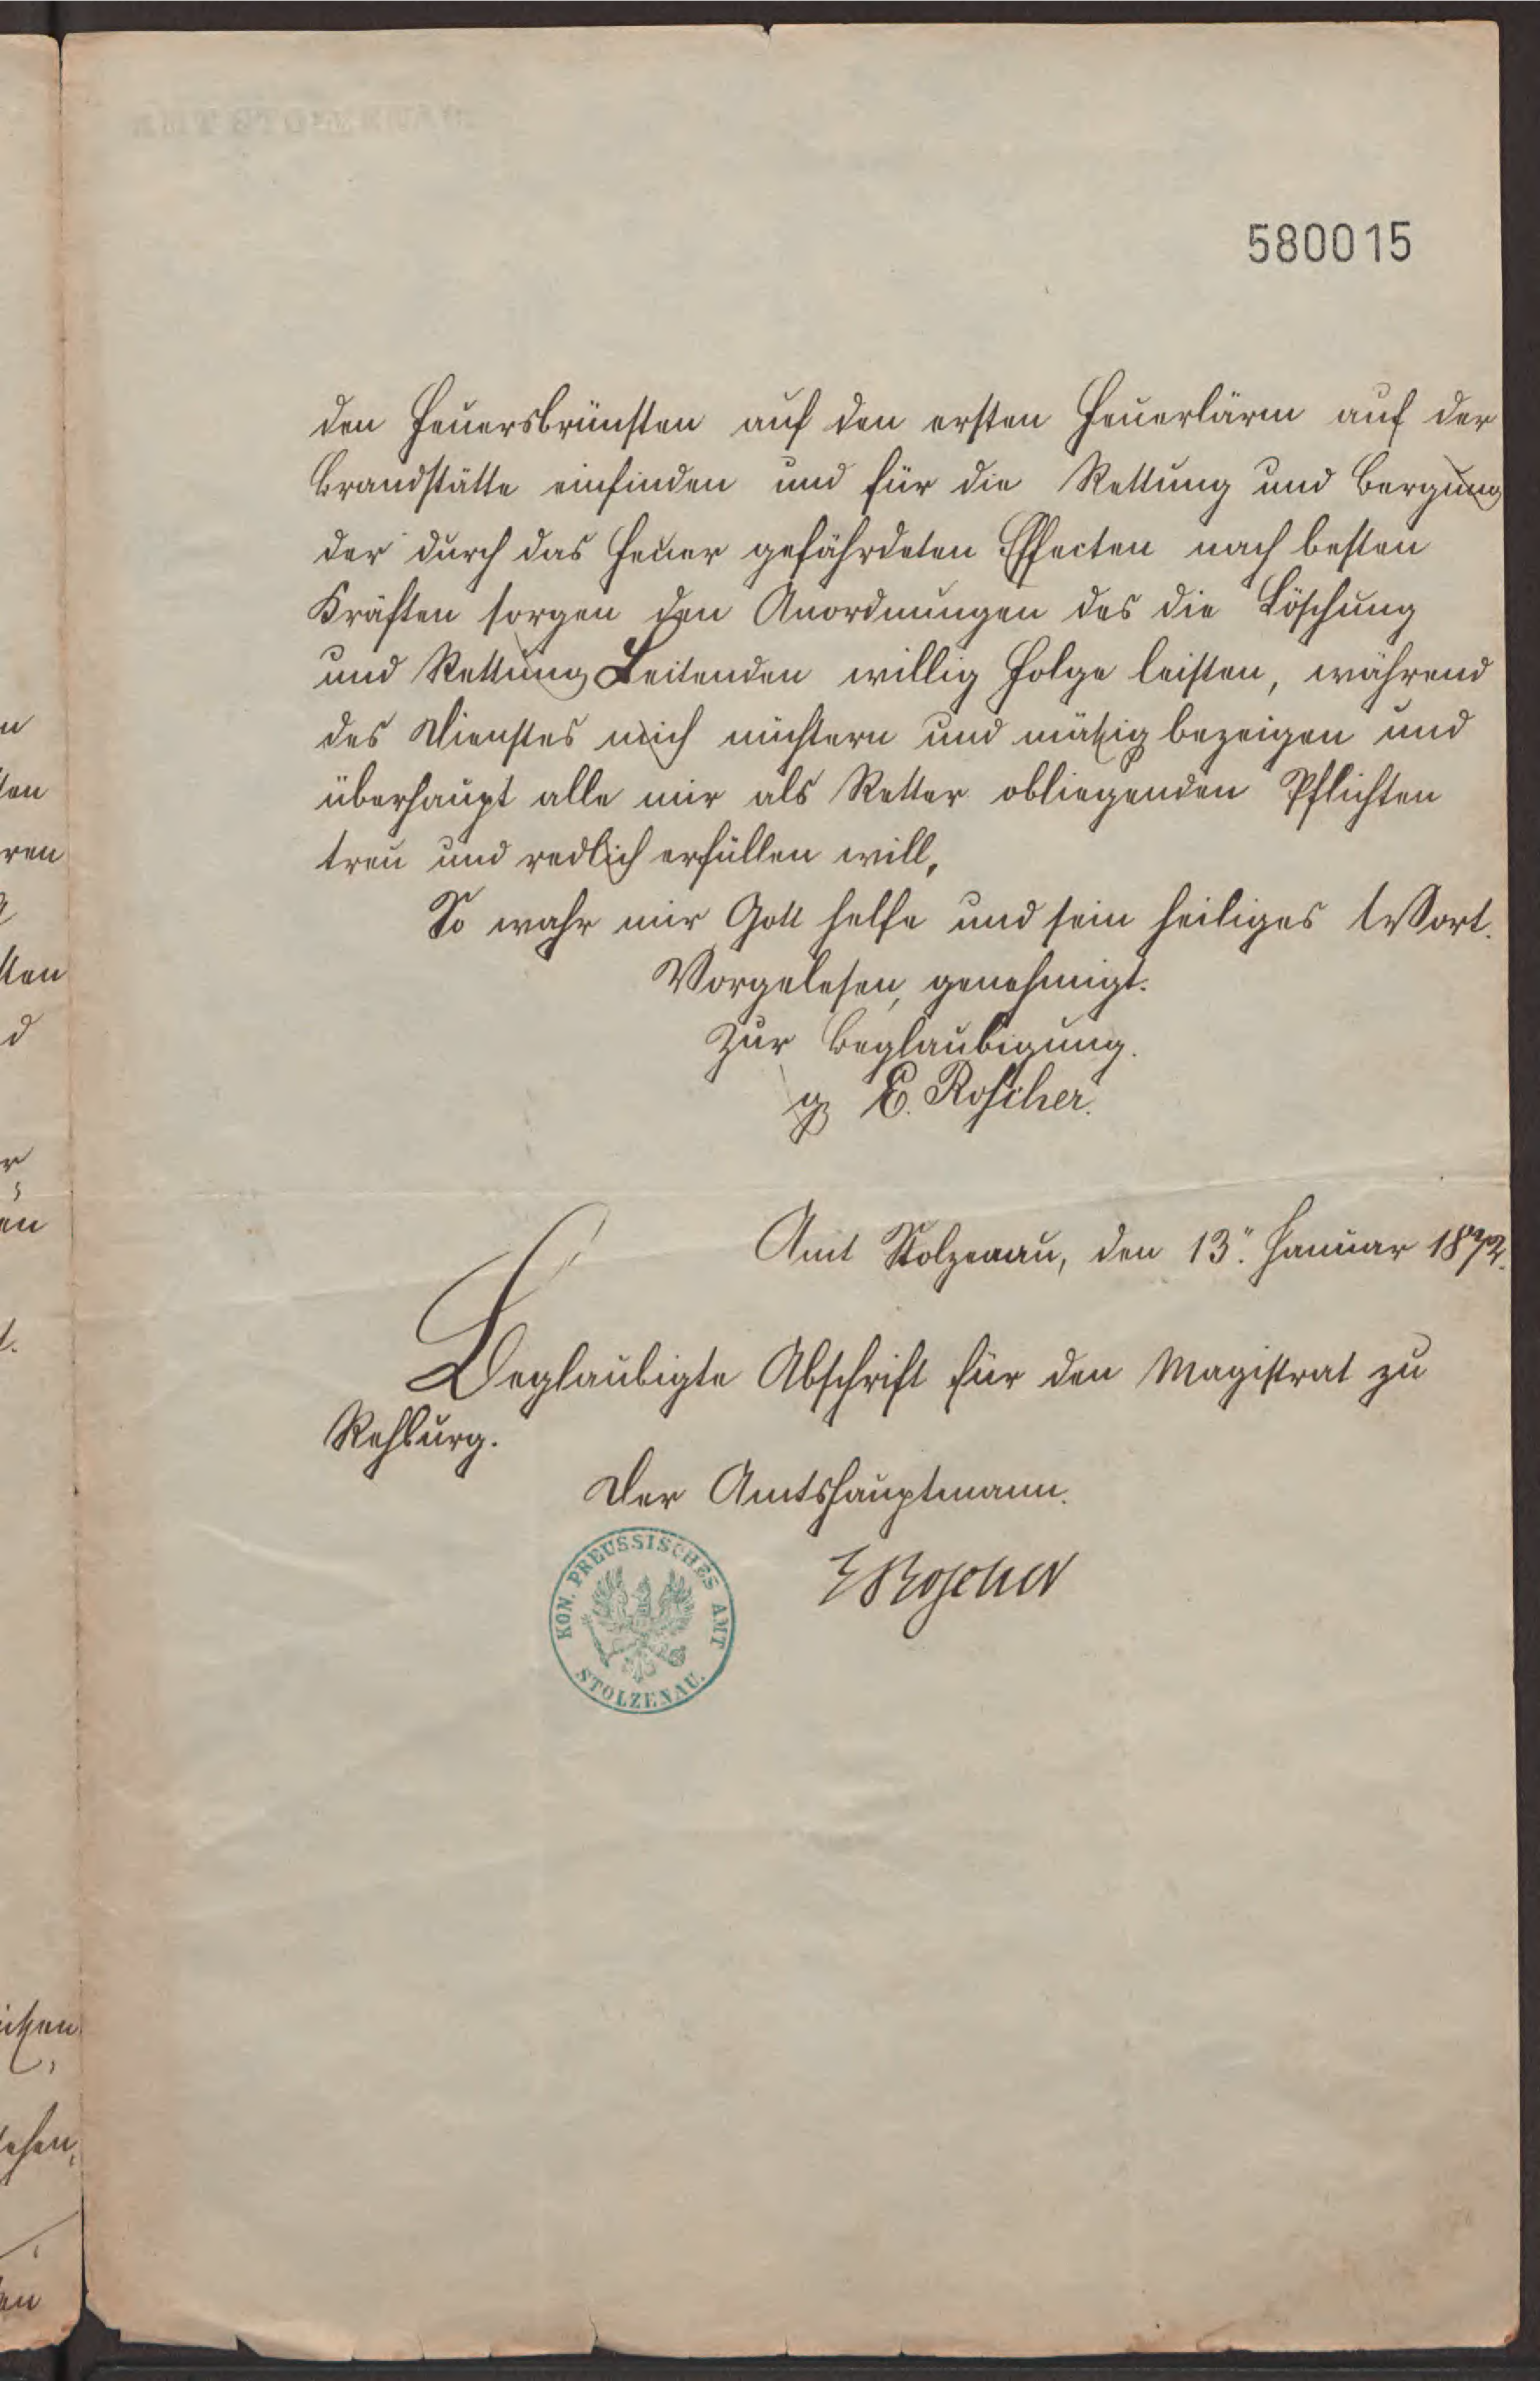 580015
den Feuersbrünsten auf den ersten Feuerlärm auf der
Brandstätte einfinden und für die Rettung und Bergung
der durch das Feuer gefährdeten Effecten nach besten
Kräften sorgen den Anordnungen des die Löschung
und Rettung Leitenden willig Folge leisten, während
des Dienstes mich nüchtern und mäßig bezeigen und
überhaupt alle mir als Retter obliegenden Pflichten
treu und redlich erfüllen will,
So wahr mir Gott helfe und sein heiliges Wort.
Vorgelesen, genehmigt.
Zur Beglaubigung.
gz E. Roscher.
Amt Stolzenau, den 13. Januar 1872.
Beglaubigte Abschrift für den Magistrat zu
Rehburg.
Der Amtshauptmann.
ERoscher
KON. PREUSSISCHES AMT
STOLZENAU.